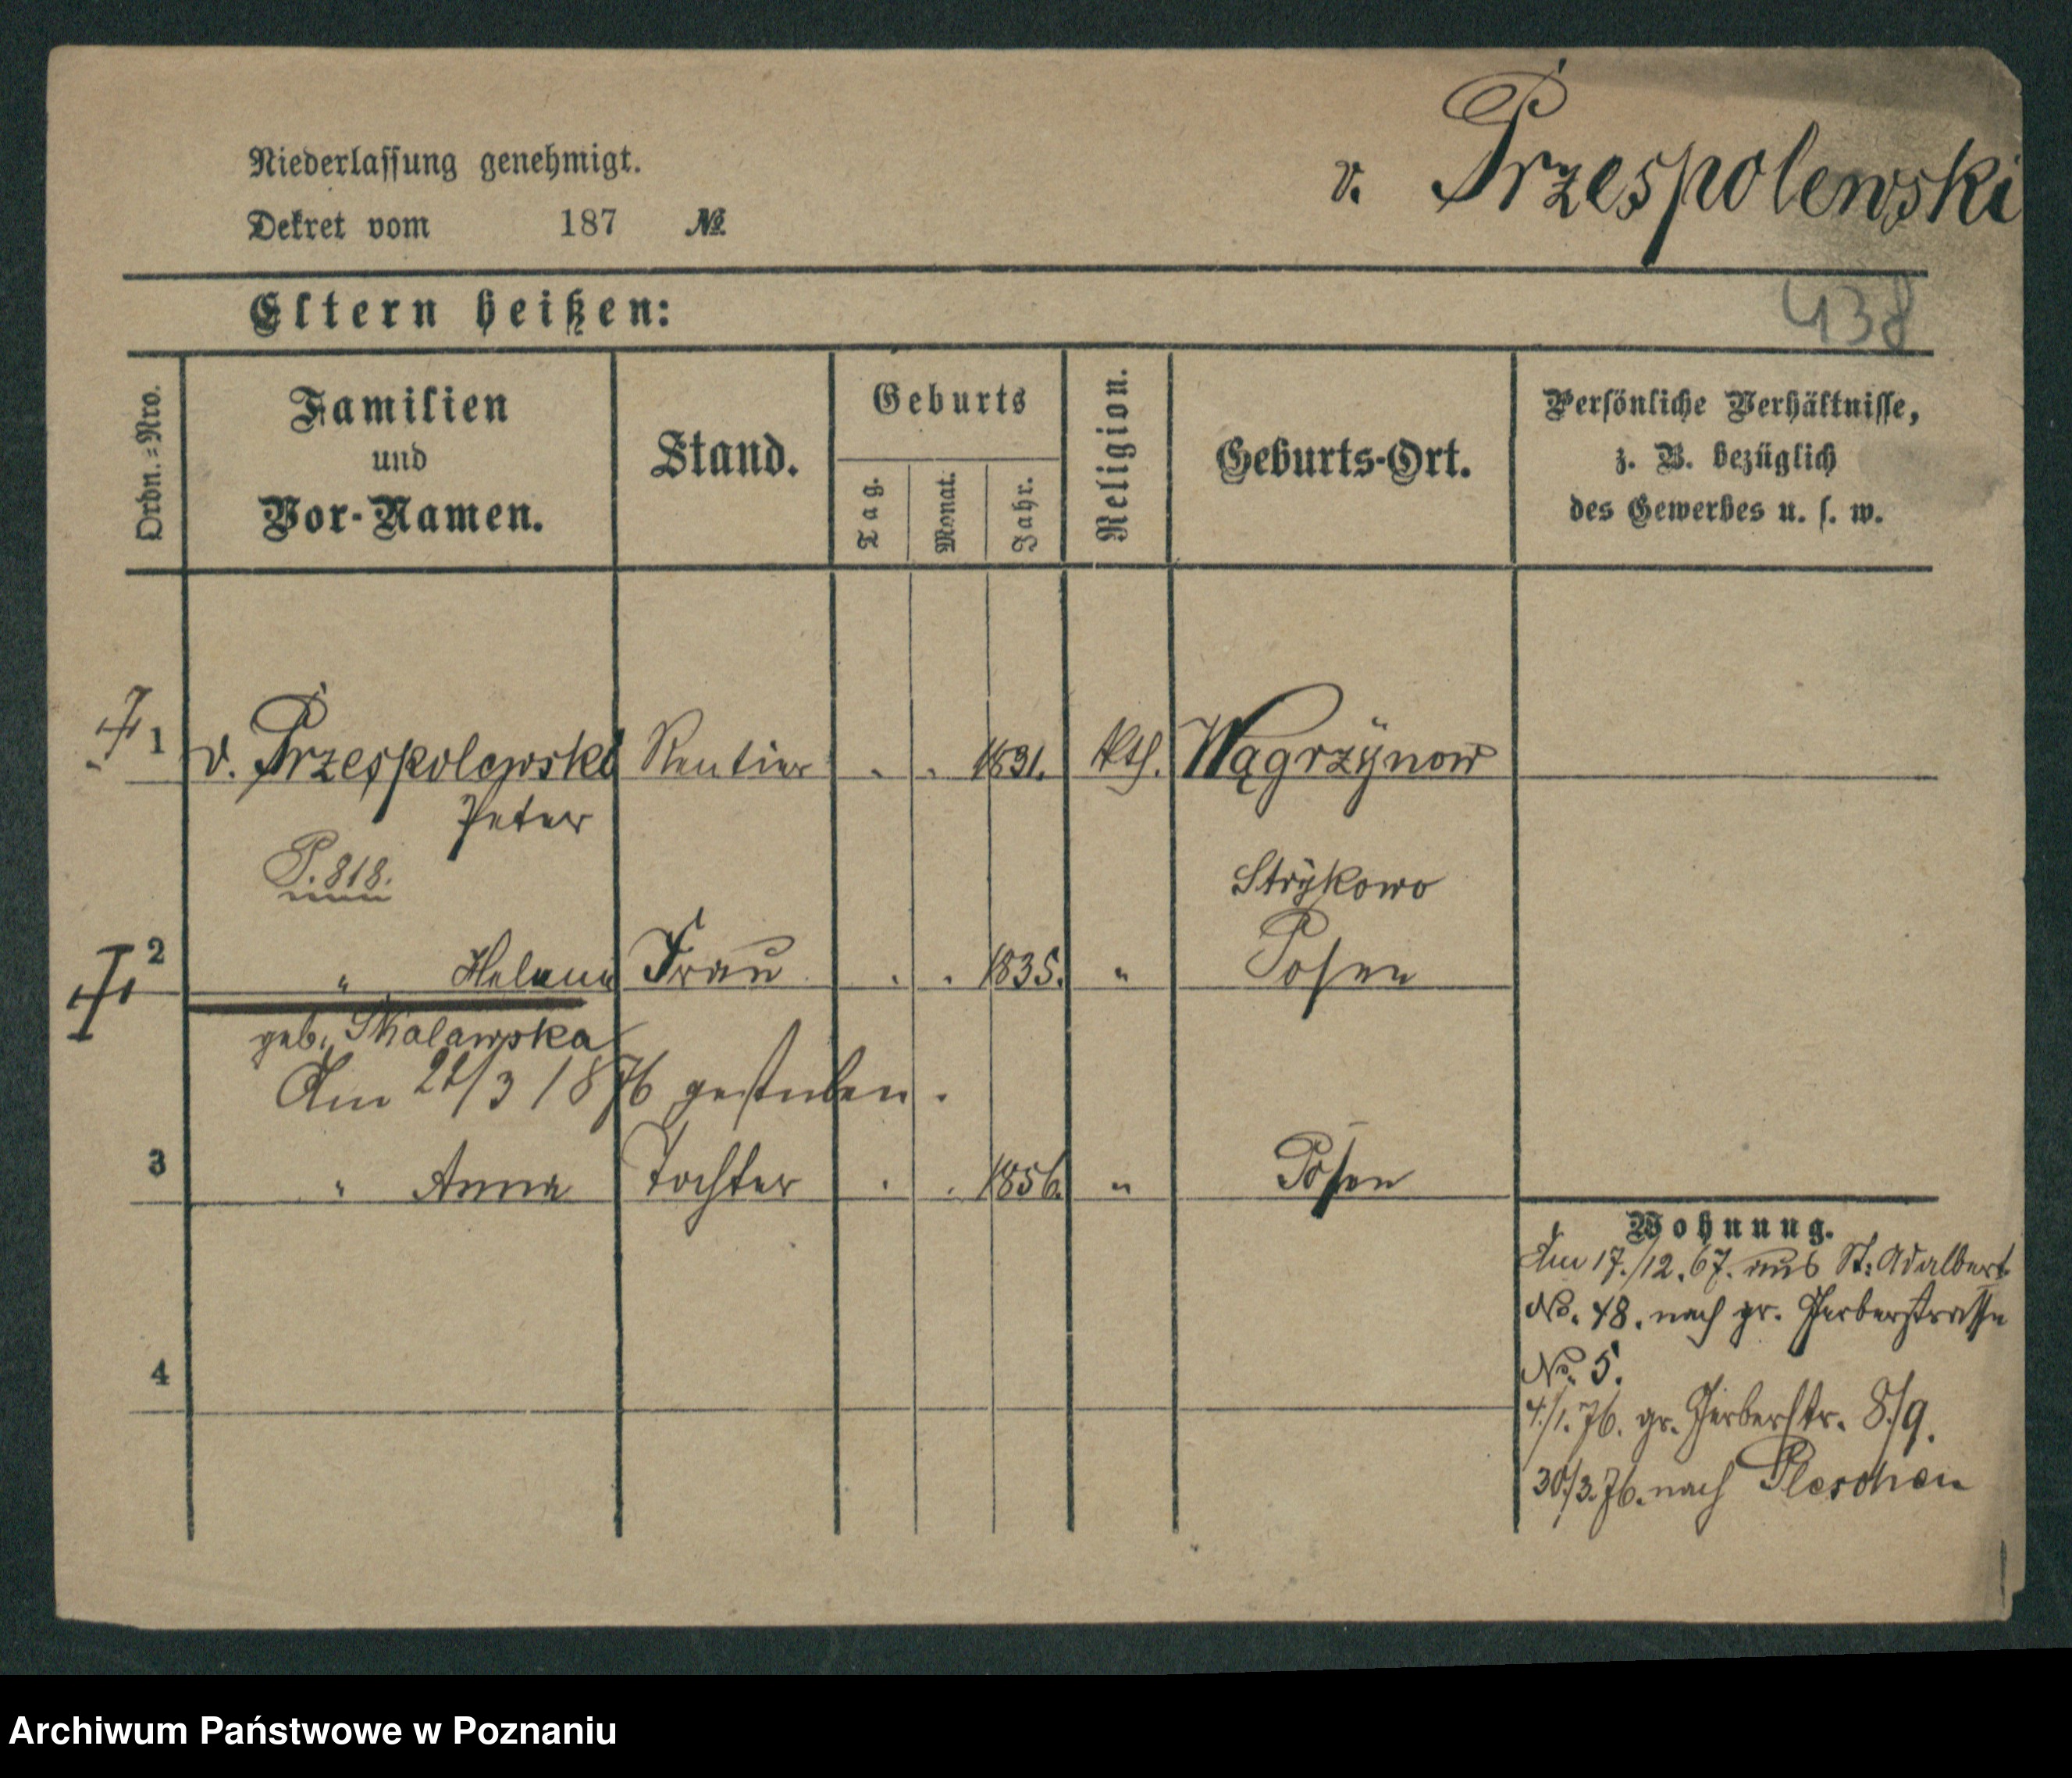 v. Przespolewski
Niederlassung genehmigt.
Dekret vom 187 №
438
Eltern heißen:
Ordn.=Nro.
Familien
und
Vor-Namen.
Stand.
Geburts
Tag.
Monat.
Jahr.
Religion.
Geburts-Ort.
Persönliche Verhältnisse,
z. B. bezüglich
des Gewerbes u. s. w.
1 v. Przespolewski Rentier . . 1831. kth. Wągrzÿnow
Peter
P. 818.
Strÿkowo
2 " Helena Frau . . 1835. " Posen
geb. Skalawska
Am 22/3 1876 gestorben.
3 " Anna Tochter . . 1856. " Posen
4
Wohnung.
Am 17./12. 67. aus St. Adalbert
No. 48. nach gr. Gerberstrasse
No. 5.
4./1. 76. gr. Gerberstr. 8/9.
30/3. 76. nach Pleschen
Archiwum Państwowe w Poznaniu